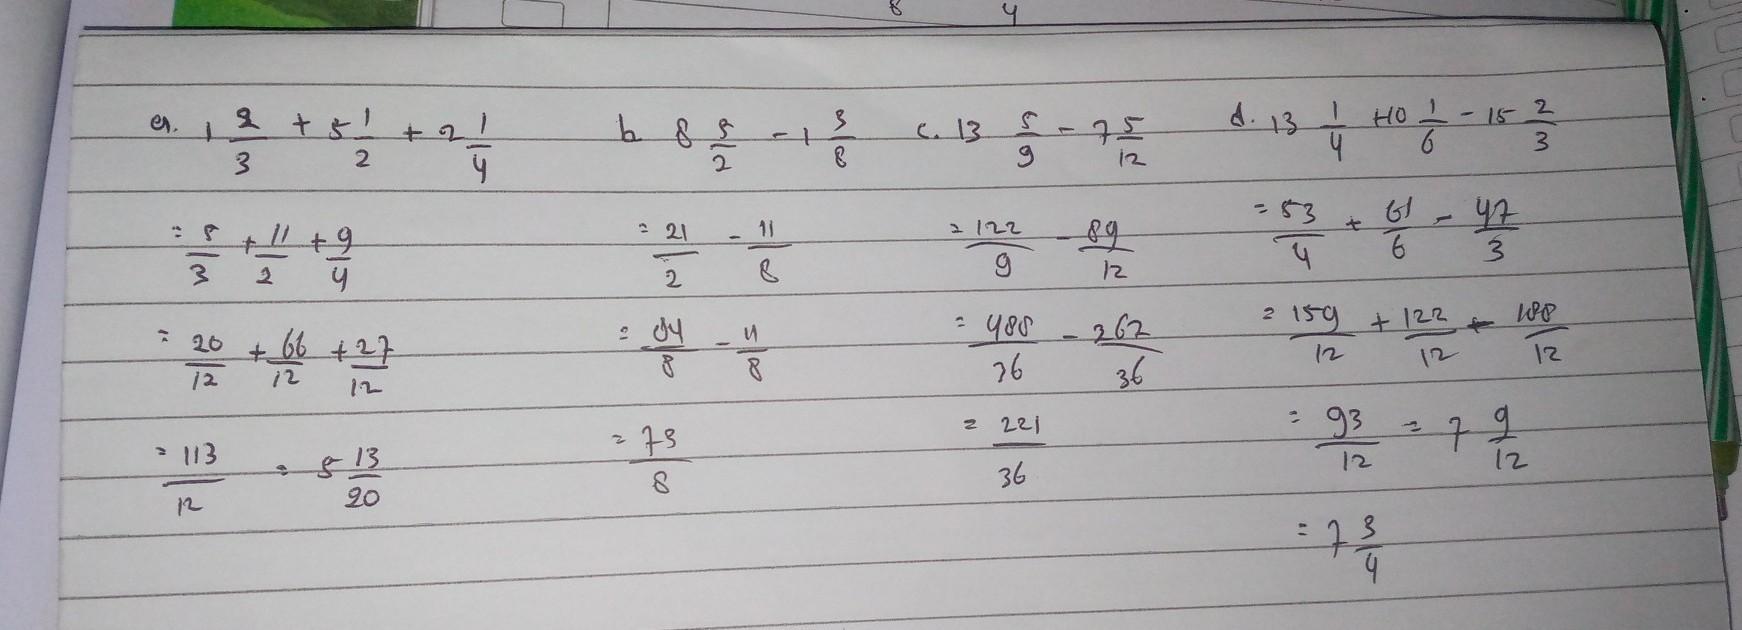 8 4
a. 1 2/3 + 5 1/2 + 2 1/4
= 5/3 + 11/2 + 9/4
= 20/12 + 66/12 + 27/12
= 113/12 = 5 13/20
b 8 5/2 - 1 3/8
= 21/2 - 11/8
= 84/8 - 11/8
= 73/8
c. 13 5/9 - 7 5/12
= 122/9 - 89/12
= 488/36 - 267/36
= 221/36
d. 13 1/4 + 10 1/6 - 15 2/3
= 53/4 + 61/6 - 47/3
= 159/12 + 122/12 - 188/12
= 93/12 = 7 9/12
= 7 3/4